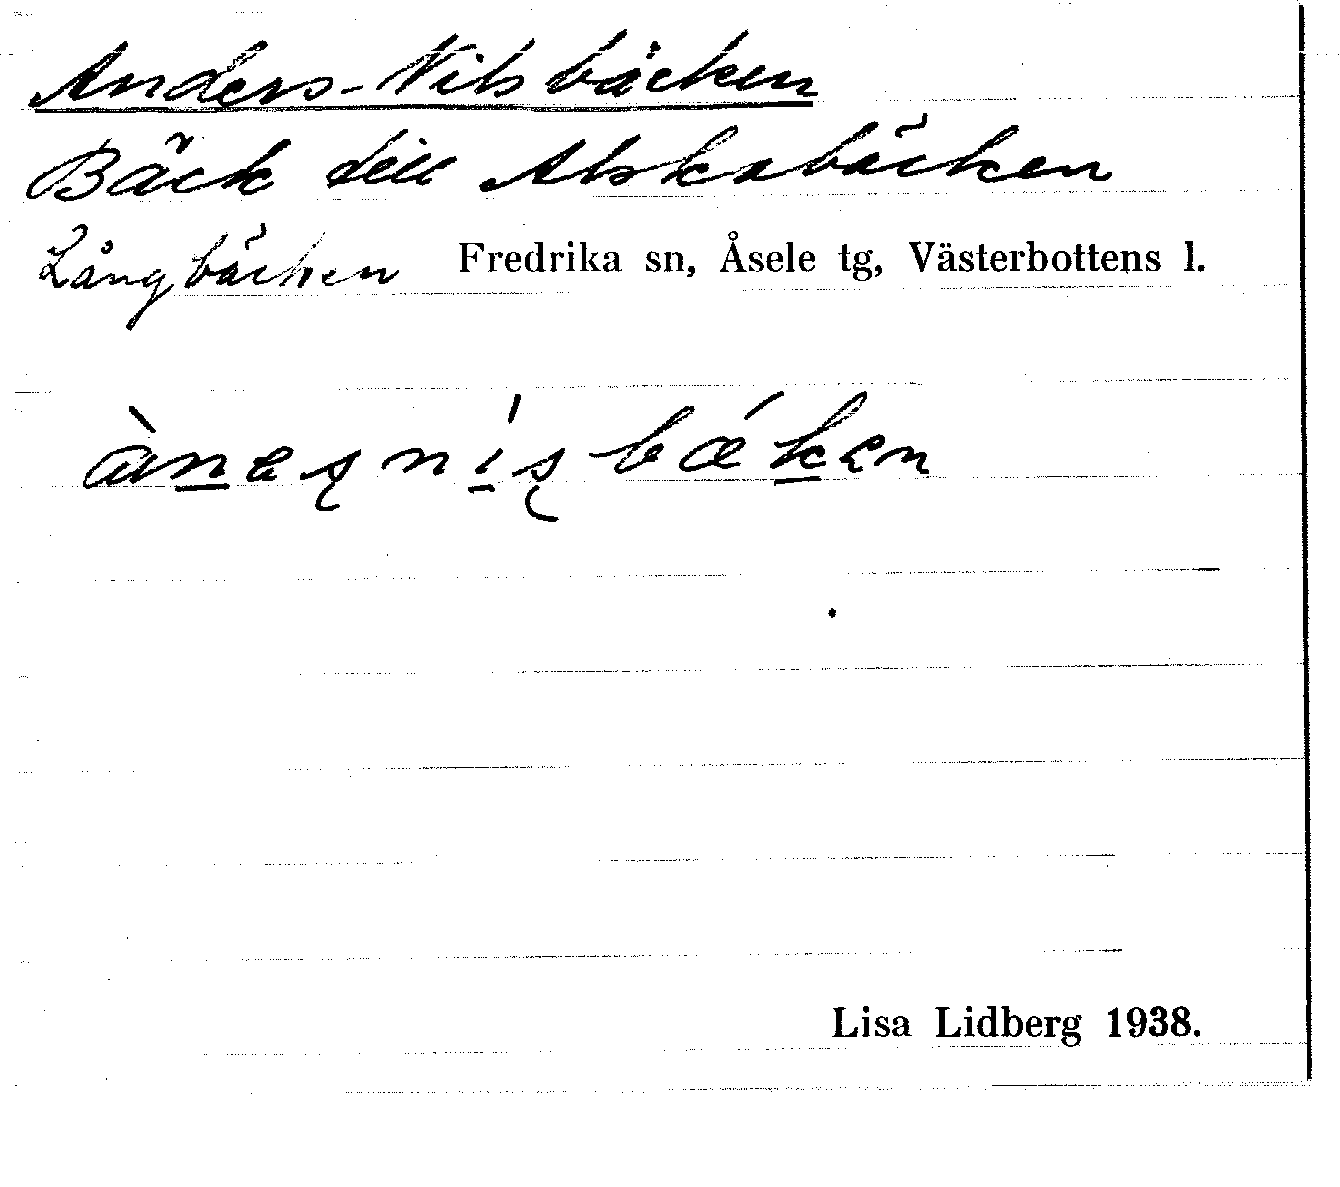 Anders-Nilsbäcken
Bäck till Alskabäcken
Långbäcken Fredrika sn, Åsele tg, Västerbottens l.
Lisa Lidberg 1938.